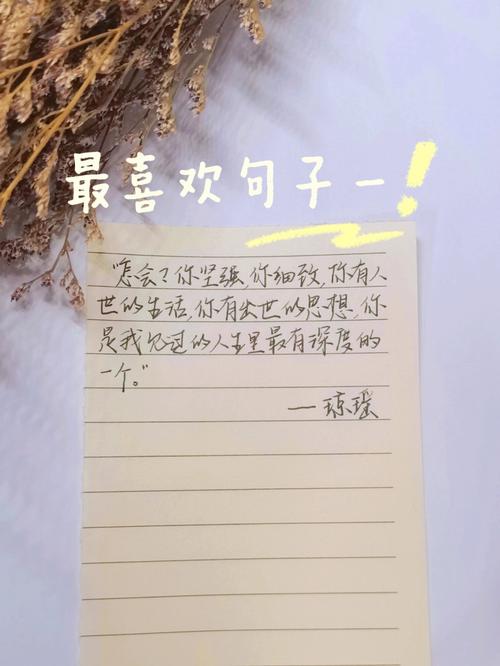 最喜欢句子一!
"怎会?你坚强,你细致,你有入
世的生活,你有出世的思想,你
是我见过的人生里最有深度的
一个。"
——琼瑶